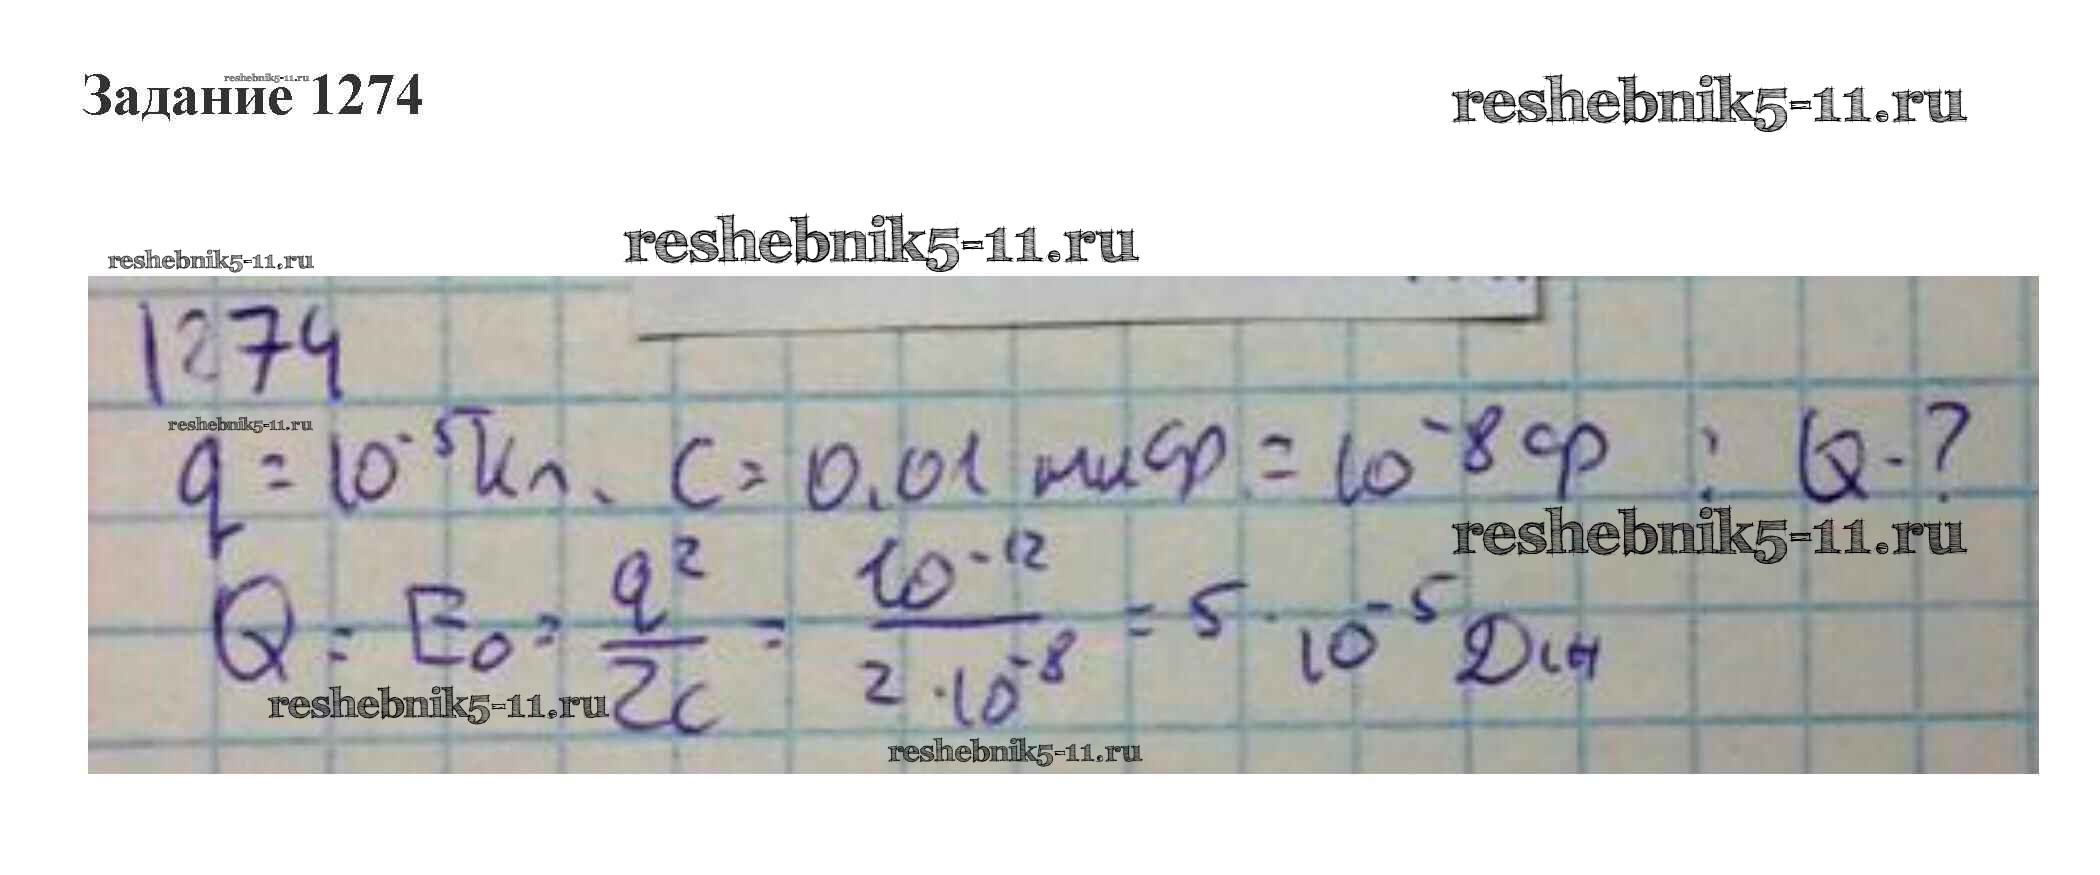 Задание 1274
reshebnik5-11.ru
reshebnik5-11.ru
reshebnik5-11.ru
reshebnik5-11.ru
1274
reshebnik5-11.ru
q = 10⁻⁵ Кл. C = 0.01 мкФ = 10⁻⁸ Ф ; Q - ?
reshebnik5-11.ru
Q = E₀ = q²/2c = 10⁻¹²/2·10⁻⁸ = 5 · 10⁻⁵ Дж
reshebnik5-11.ru
reshebnik5-11.ru